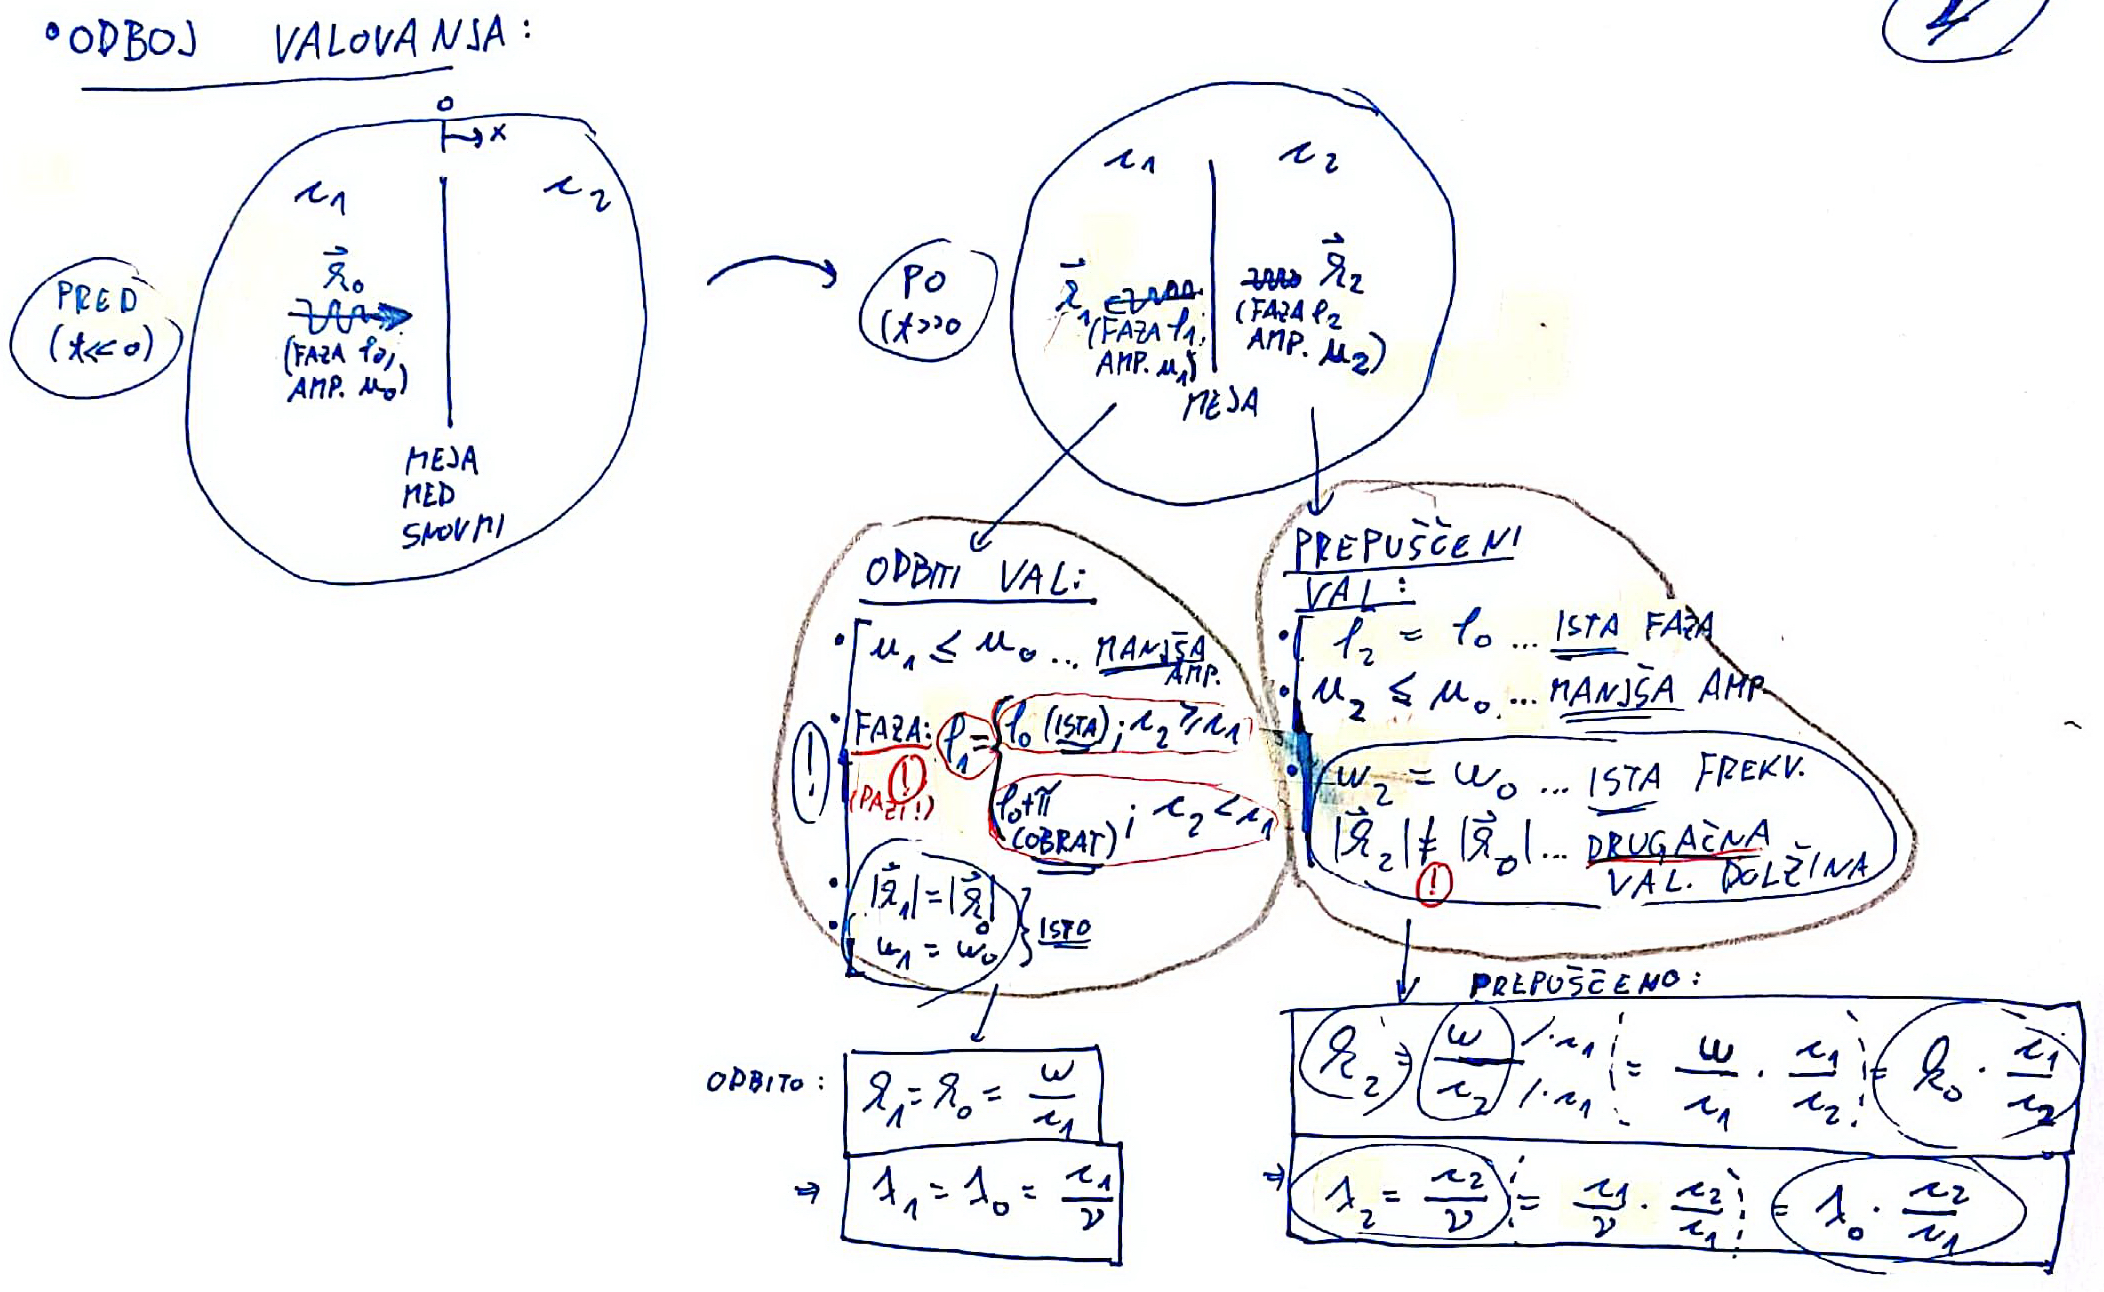 • ODBOJ VALOVANJA:
1
0
x
c₁ c₂
PRED
(t<<0)
k⃗₀
(FAZA φ₀,
AMP. u₀)
MEJA
MED
SNOVMI
PO
(t>>0
c₁ c₂
k⃗₁
(FAZA φ₁,
AMP. u₁)
k⃗₂
(FAZA φ₂
AMP. u₂)
MEJA
ODBITI VAL:
• u₁ ≤ u₀ ... MANJŠA
AMP.
• FAZA: φ₁ = φ₀ (ISTA); c₂ ≥ c₁
! (PAZI!) !
φ₀+π
(OBRAT); c₂ < c₁
• |k⃗₁| = |k⃗₀|
• ω₁ = ω₀ } ISTO
PREPUŠČENI
VAL:
• φ₂ = φ₀ ... ISTA FAZA
• u₂ ≤ u₀ ... MANJŠA AMP.
• ω₂ = ω₀ ... ISTA FREKV.
|k⃗₂| ≠ |k⃗₀| ... DRUGAČNA
! VAL. DOLŽINA
ODBITO: k₁ = k₀ = ω/c₁
⇒ λ₁ = λ₀ = c₁/ν
PREPUŠČENO:
k₂ = ω/c₂ /·c₁ /·c₁ = ω/c₁ · c₁/c₂ = k₀ · c₁/c₂
⇒ λ₂ = c₂/ν = c₁/ν · c₂/c₁ = λ₀ · c₂/c₁